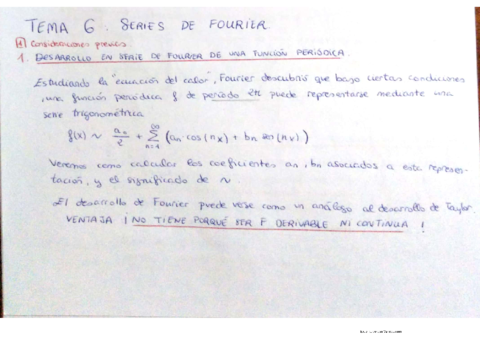 TEMA 6. SERIES DE FOURIER.
Consideraciones previas.
1. DESARROLLO EN SERIE DE FOURIER DE UNA FUNCIÓN PERIÓDICA.
Estudiando la "ecuación del calor", Fourier descubrió que bajo ciertas condiciones
, una función periódica f de período 2π puede representarse mediante una
serie trigonométrica
f(x) ~ a₀/2 + ∑_{n=1}^{∞} (aₙ cos(nx) + bₙ sen(nx).)
Veremos como calcular los coeficientes aₙ, bₙ asociados a esta represen-
tación, y el significado de ~.
El desarrollo de Fourier puede verse como un análogo al desarrollo de Taylor
VENTAJA ¡NO TIENE PORQUÉ SER F DERIVABLE NI CONTINUA!